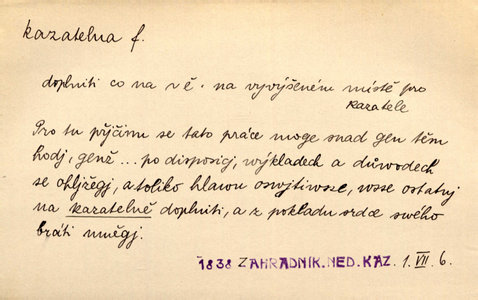 kazatelna f.
doplniti co na v ě. na vyvýšeném místě pro
kazatele
Pro tu přjčinu se tato práce moge snad gen těm
hodj, genž ... po disposicj, wýkladech a důwodech
se ohljžegj, a toliko hlawu oswojtiwsse, wsse ostatnj
na kazatelně doplniti, a z pokladu srdce swého
bráti umějgj.
1838 ZAHRADNÍK. NED. KAZ. 1. VII. 6.